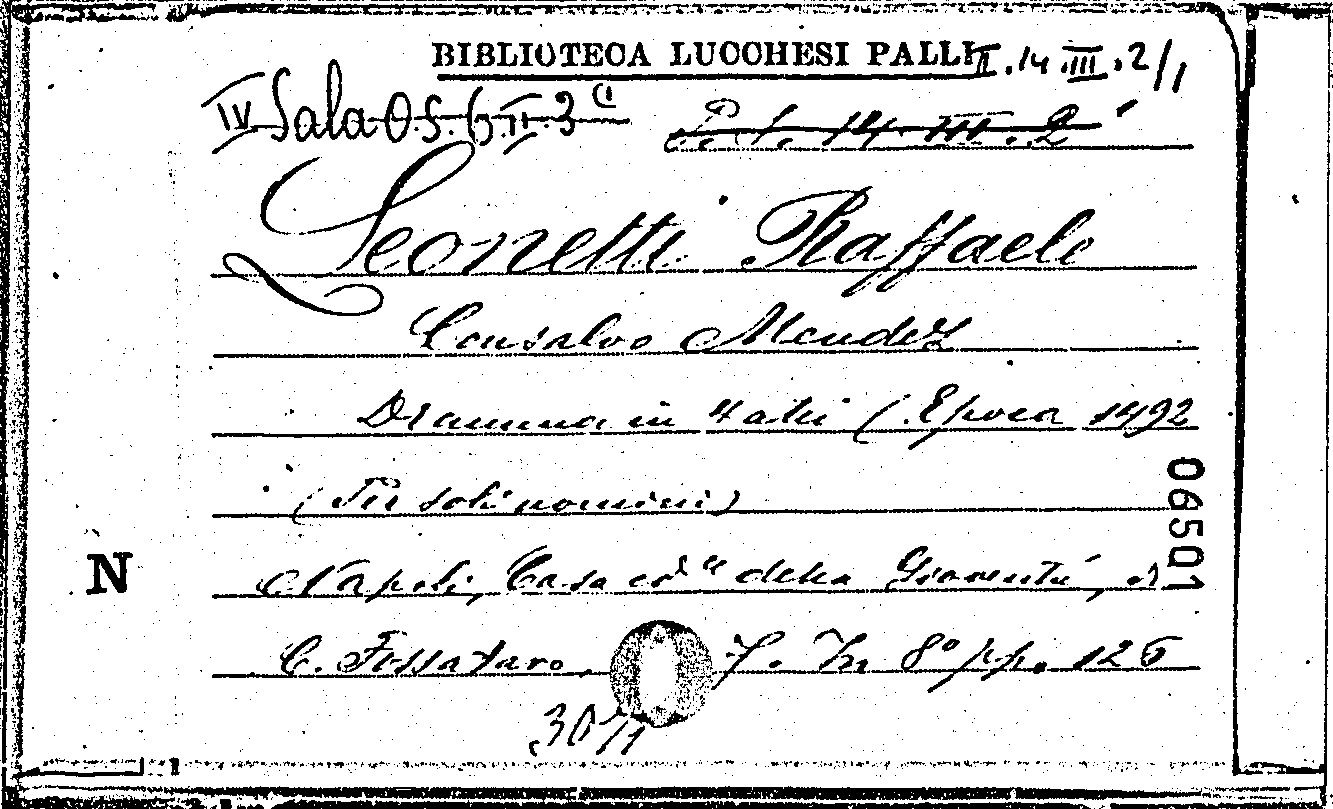 BIBLIOTECA LUCCHESI PALLI II.14.III.2/1
IV Sala O.S. 6.II.3(1
P. I. 14. III. 2
Leonetti Raffaele
Consalvo Mendez
Dramma in 4 atti (Epoca 1492
(Per soli uomini)
Napoli, Casa ed. della Gioventù, di
C. Fossataro, 7. In 8° pp. 126
30/1
N
06501